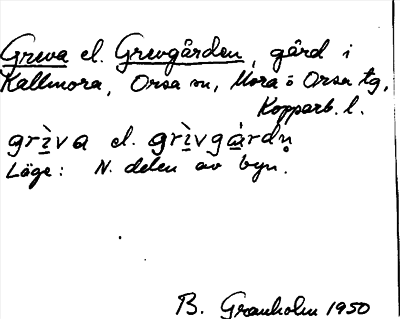 Greva el. Grevgården, gård i
Kallmora, Orsa sn, Mora o Orsa tg,
Kopparb. l.
grì̲va el. grì̲vgà̲rdn̥
Läge: N. delen av byn.
B. Granholm 1950